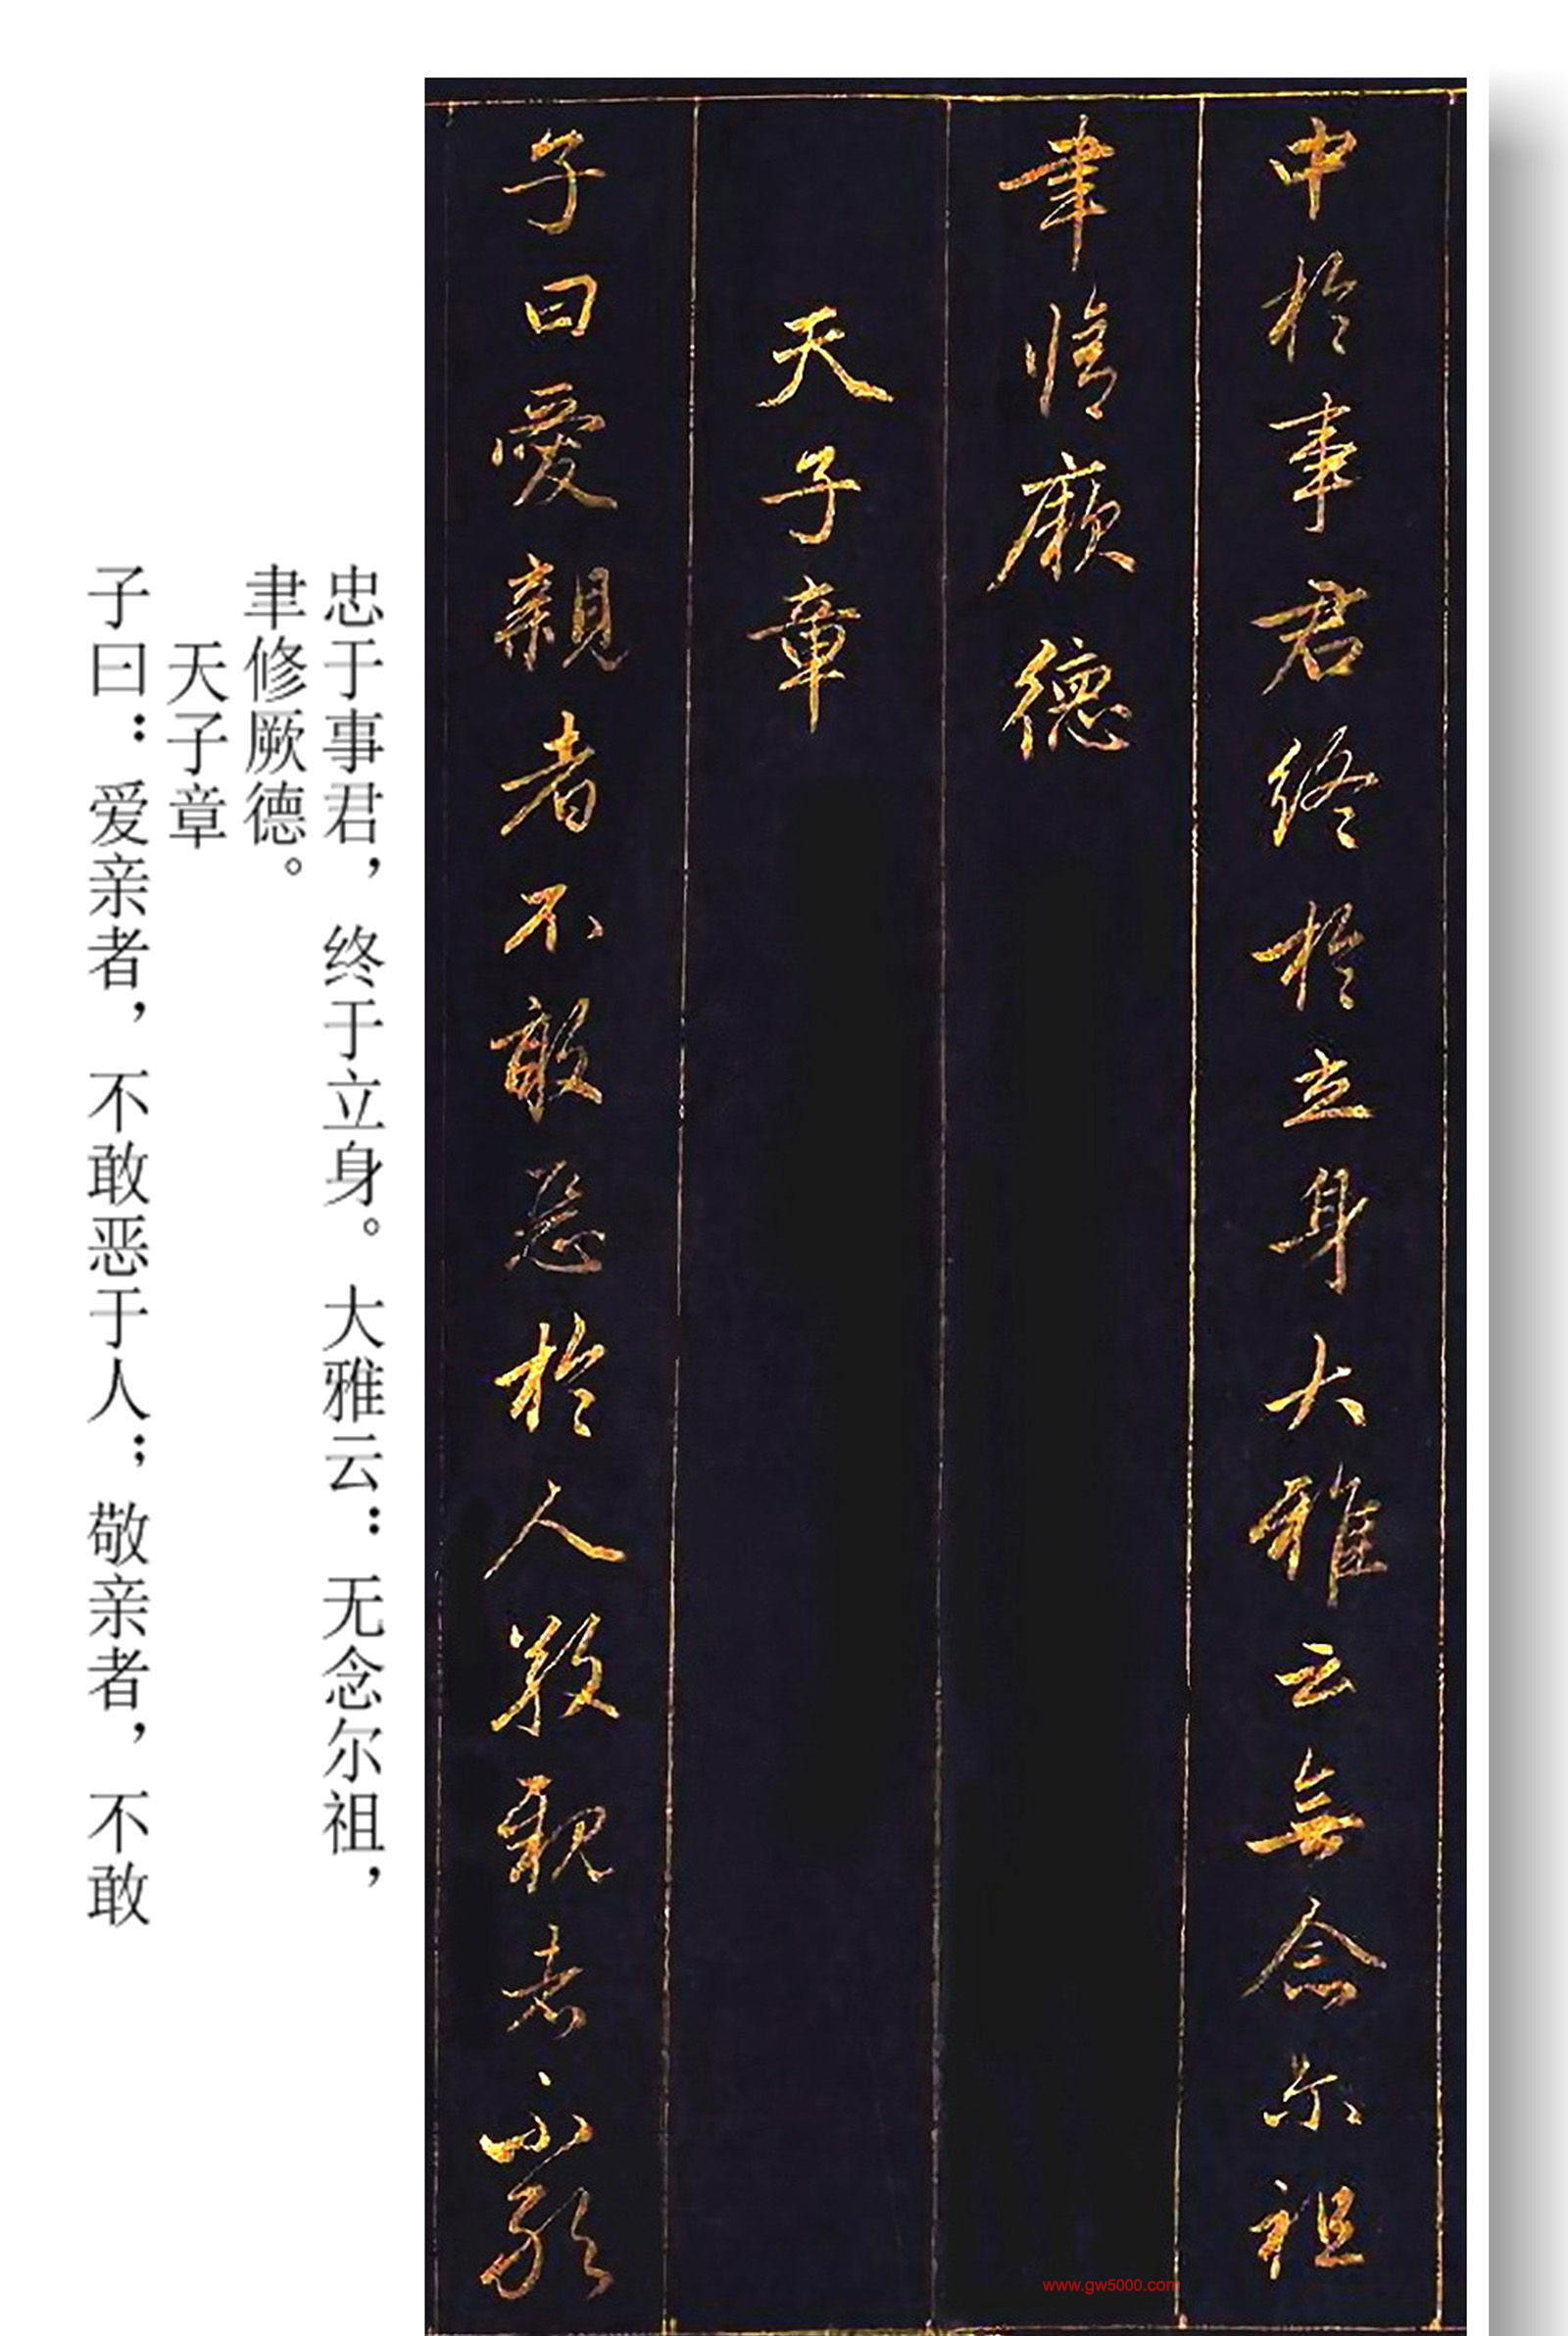 中於事君終於立身大雅云無念尔祖
聿脩厥德
天子章
子曰愛親者不敢惡於人敬親者不敢
忠于事君，终于立身。大雅云：无念尔祖，
聿修厥德。
天子章
子曰：爱亲者，不敢恶于人；敬亲者，不敢
www.gw5000.com